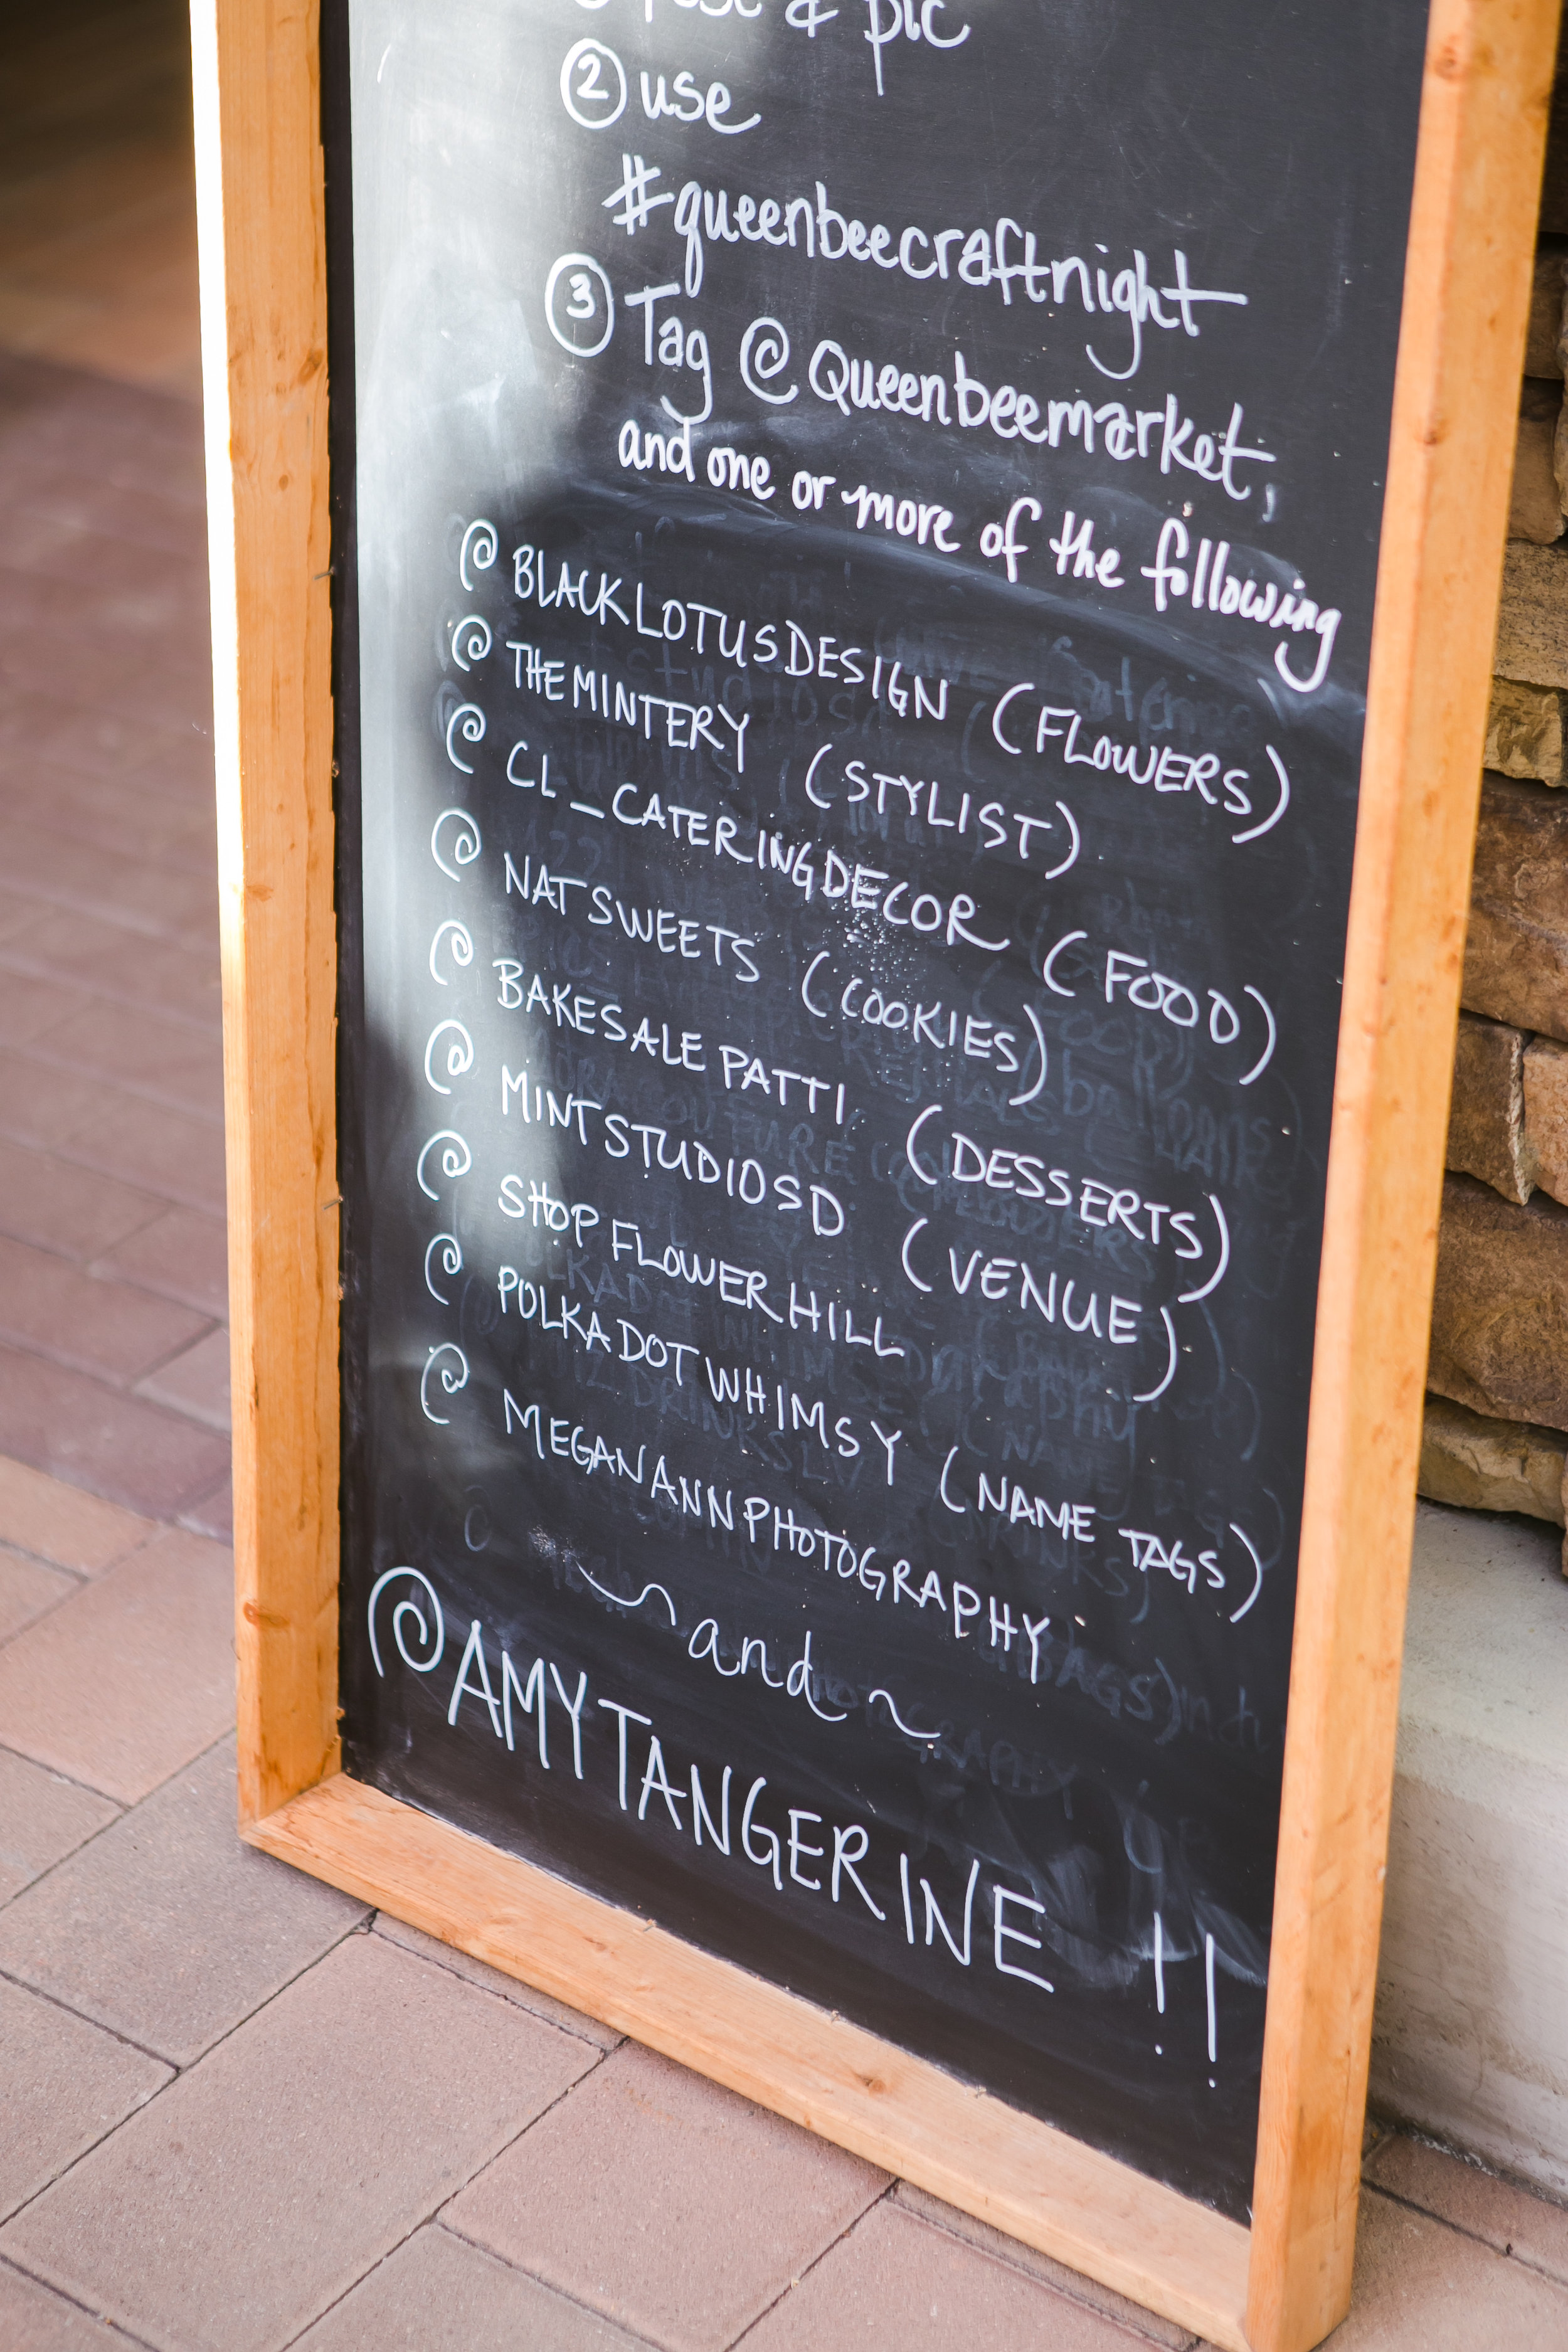 & pic
② use
#queenbeecraftnight
③ Tag @Queenbeemarket,
and one or more of the following
@ BLACKLOTUSDESIGN (FLOWERS)
@ THEMINTERY (STYLIST)
@ CL_CATERINGDECOR (FOOD)
@ NATSWEETS (COOKIES)
@ BAKESALEPATTI (DESSERTS)
@ MINTSTUDIOSD (VENUE)
@ SHOPFLOWERHILL
@ POLKADOTWHIMSY (NAME TAGS)
@ MEGANANNPHOTOGRAPHY
~and~
@AMYTANGERINE !!